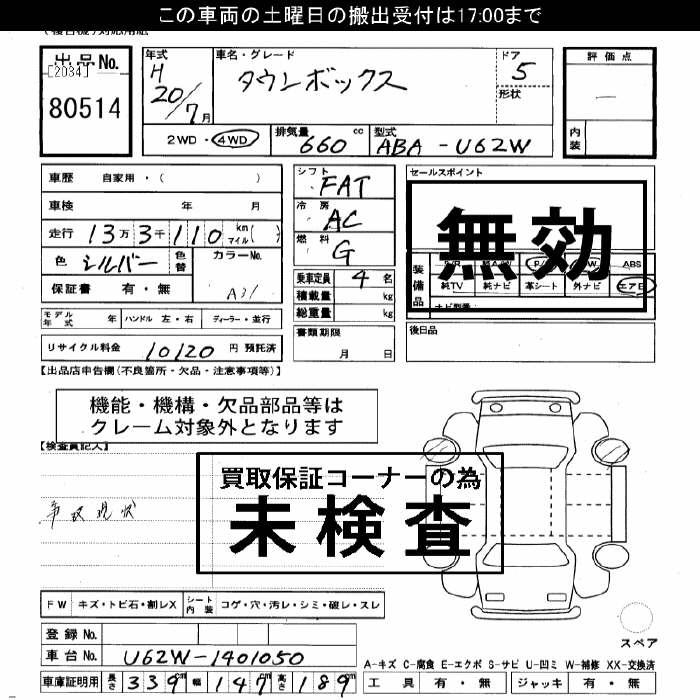 この車両の土曜日の搬出受付は17:00まで
出品No.
[2034]
80514
年式
H
20/7月
車名・グレード
タウンボックス
ドア
5
形状
評価点
内装
2WD・4WD
排気量
660 cc
型式
ABA-U62W
車歴 自家用・( )
車検 年 月
走行 13万3千110 km マイル( )
色 シルバー 色替
カラーNo.
A31
保証書 有・無
シフト
FAT
冷房
AC
燃料
G
乗車定員 4 名
積載量 kg
総重量 kg
セールスポイント
無効
装備品
ABS
純TV 純ナビ 革シート 外ナビ エアB
ナビ型番:
モデル年式 年 ハンドル 左・右 ディーラー・並行
リサイクル料金 10120 円 預託済
書類期限
月 日
後日品
【出品店申告欄(不良箇所・欠品・注意事項等)】
機能・機構・欠品部品等は
クレーム対象外となります
【検査員記入】
買取保証コーナーの為
未検査
事故現状
FW キズ・トビ石・割レX シート内装 コゲ・穴・汚レ・シミ・破レ・スレ
スペア
登録No.
車台No. U62W-1401050
A-キズ C-腐食 E-エクボ S-サビ U-凹ミ W-補修 XX-交換済
車庫証明用 長さ 339m 幅 147m 高さ 189m
工具 有・無 ジャッキ 有・無